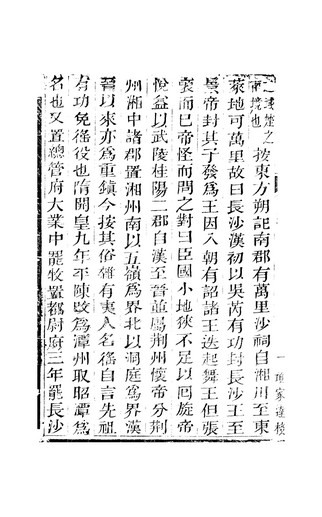 楚之
南境也
按東方朔記南郡有萬里沙祠自湘川至東
萊地可萬里故曰長沙漢初以吳芮有功封長沙王至
景帝封其子發爲王因入朝有詔諸王迭起舞王但張
袖而已帝怪而問之對曰臣國小地狹不足以回旋帝
悅益以武陵桂陽二郡自漢至晉並屬荆州懷帝分荆
州湘中諸郡置湘州南以五嶺爲界北以洞庭爲界漢
晉以來亦爲重鎮今按其俗雜有夷人名徭自言先祖
有功免徭役也隋開皇九年平陳改爲潭州取昭潭爲
名也又置總管府大業中罷牧置都尉府三年罷長沙